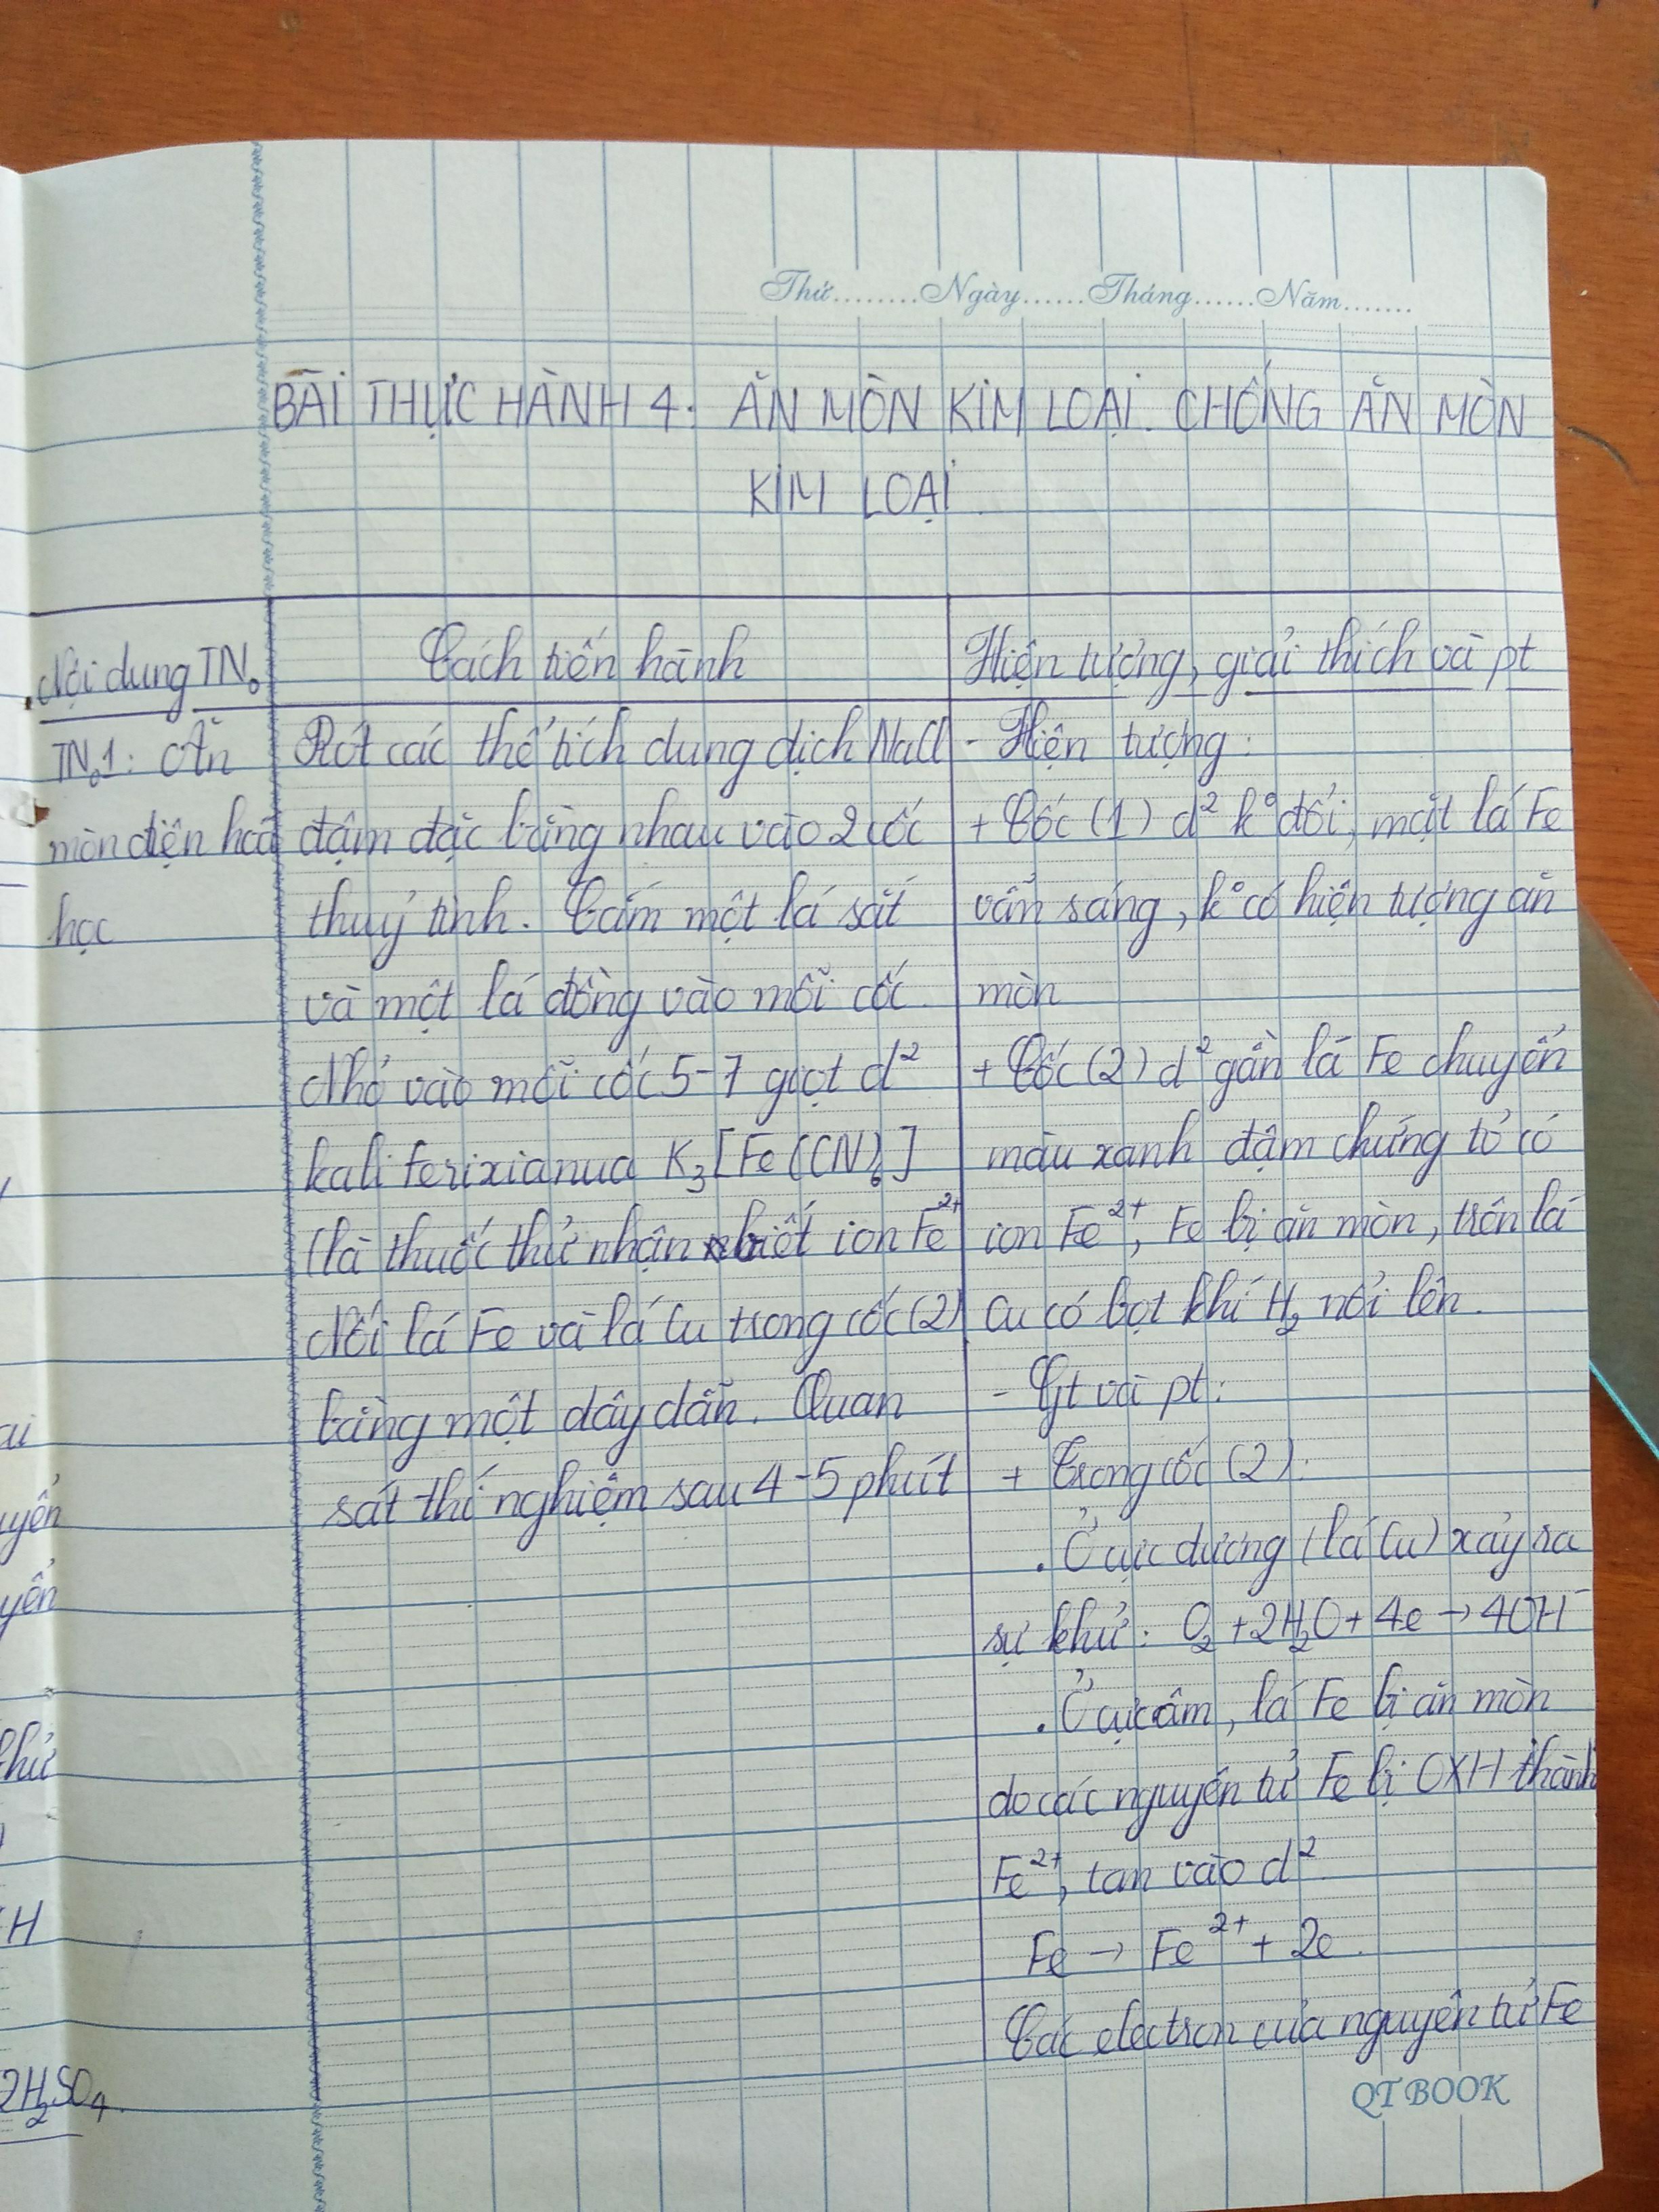 Thứ........Ngày......Tháng......Năm.......
BÀI THỰC HÀNH 4: ĂN MÒN KIM LOẠI. CHỐNG ĂN MÒN
KIM LOẠI.
Nội dung TN₀
Cách tiến hành
Hiện tượng, giải thích và pt
TN₀1: Ăn
mòn điện hoá
học
Rót các thể tích dung dịch NaCl
đậm đặc bằng nhau vào 2 cốc
thuỷ tinh. Cắm một lá sắt
và một lá đồng vào mỗi cốc.
Nhỏ vào mỗi cốc 5-7 giọt d²
kali ferixianua K₃[Fe(CN)₆]
(là thuốc thử nhận biết ion Fe²⁺
Nối lá Fe và lá Cu trong cốc (2)
bằng một dây dẫn. Quan
sát thí nghiệm sau 4-5 phút
- Hiện tượng:
+ Cốc (1) d² k° đổi, mặt lá Fe
vẫn sáng, k° có hiện tượng ăn
mòn
+ Cốc (2) d² gần lá Fe chuyển
màu xanh đậm chứng tỏ có
ion Fe²⁺, Fe bị ăn mòn, trên lá
Cu có bọt khí H₂ nổi lên.
- Gt và pt:
+ Trong cốc (2):
. Ở cực dương (lá Cu) xảy ra
sự khử: O₂ + 2H₂O + 4e → 4OH⁻
. Ở cực âm, lá Fe bị ăn mòn
do các nguyên tử Fe bị OXH thành
Fe²⁺, tan vào d²
Fe → Fe²⁺ + 2e.
Các electron của nguyên tử Fe
QT BOOK
ai
uyển
yển
khử
H
2H₂SO₄.